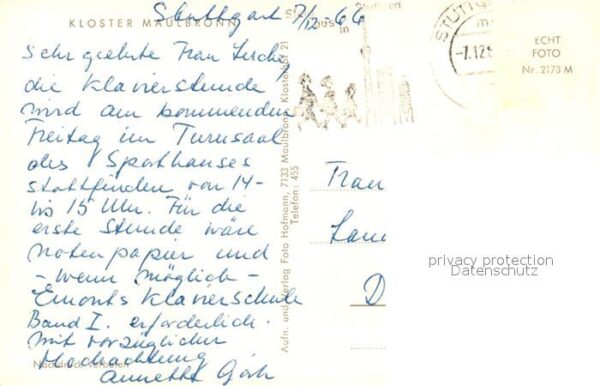 KLOSTER MAULBRONN
Stuttgart 7/12.66
Sehr geehrte Frau
die Klavierstunde
wird am kommenden
Freitag im Turnsaal
des Sporthauses
stattfinden von 14-
bis 15 Uhr. Für die
erste Stunde wäre
Notenpapier und
- wenn möglich -
Emonts Klavierschule
Band I. erforderlich.
mit vorzüglicher
Hochachtung
Annette
Aufn. und Verlag Foto Hofmann, 7133 Maulbronn, Klosterhof 21
Telefon: 455
in
-7.12.6
ECHT
FOTO
Nr. 2173 M
Frau
D
privacy protection
Datenschutz